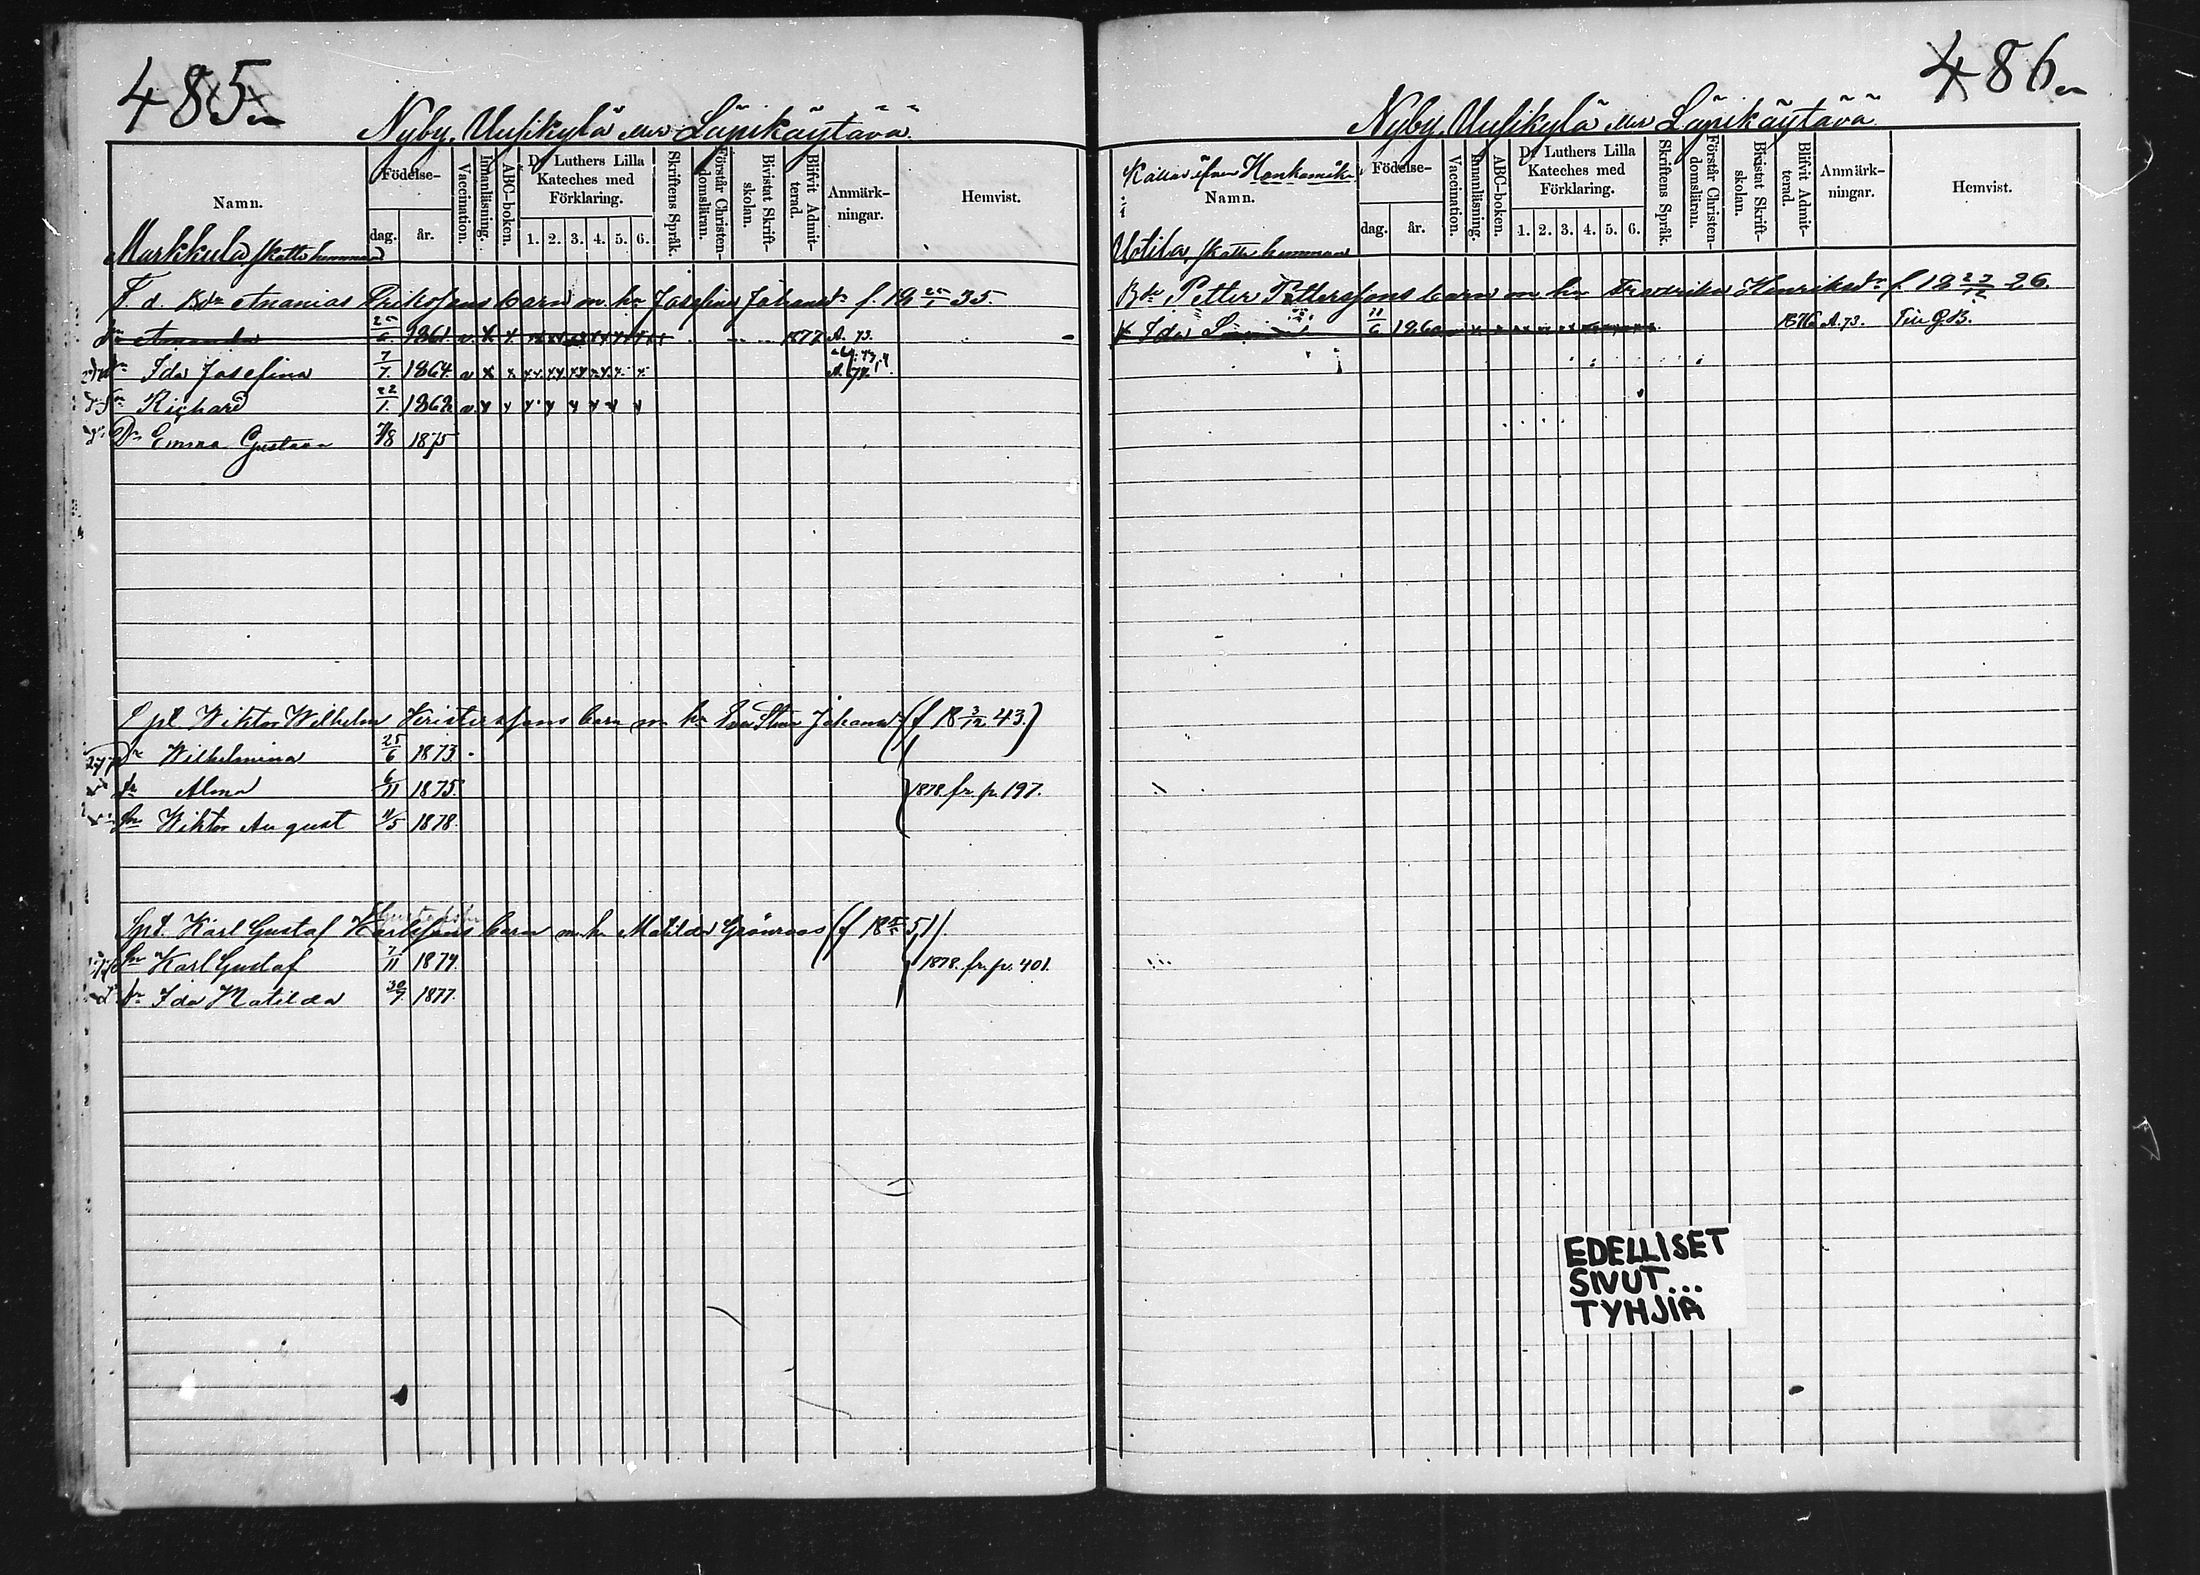 485
Nyby, Uusikylä eller Läpikäytävä
Namn.
Födelse-
dag.
år.
Vaccination.
Innanläsning.
ABC-boken.
D:r Luthers Lilla Kateches med Förklaring.
1. 2. 3. 4. 5. 6.
Skriftens Språk.
Förstår Christendomsläran.
Bivistat Skriftskolan.
Blifvit Admitterad.
Anmärkningar.
Hemvist.
Markkula Skatte hemman
F. d. Bdn Ananias Eriksons barn m. hu Josefina Johansdr f. 18 35.
Dr Amanda 1861 v x x 1877 A. 73.
Dr Ida Josefina 7/1 1864 v x x
Sn Richard 22/1 1868 v x x
Dr Emma Gustava 1875
Wiktor Wilhelm Kristerssons barn m hu Eva Stina Johansdr (f 18 3/12 43.)
Dr Wilhelmina 25/6 1873
dr Alma 6/11 1875 1878. fr. p. 197.
Sn Wiktor August 4/5 1878.
Karl Gustaf Karlssons barn m. hu Matilda Grönroos (f 18 51).
Sn Karl Gustaf 7/11 1874. 1878. fr. p. 401.
dr Ida Matilda 30/7 1877.
486
Nyby, Uusikylä eller Läpikäytävä
Kallas äfven Hankamäki
Namn.
Födelse-
dag.
år.
Vaccination.
Innanläsning.
ABC-boken.
D:r Luthers Lilla Kateches med Förklaring.
1. 2. 3. 4. 5. 6.
Skriftens Språk.
Förstår Christendomsläran.
Bivistat Skriftskolan.
Blifvit Admitterad.
Anmärkningar.
Hemvist.
Uotila, Skatte hemman
Bdn Petter Petterssons barn m hu Fredrika Henriksdr f. 18 27/12 26.
Ida 11/6 1860 1876 A. 73.
EDELLISET
SIVUT...
TYHJIÄ